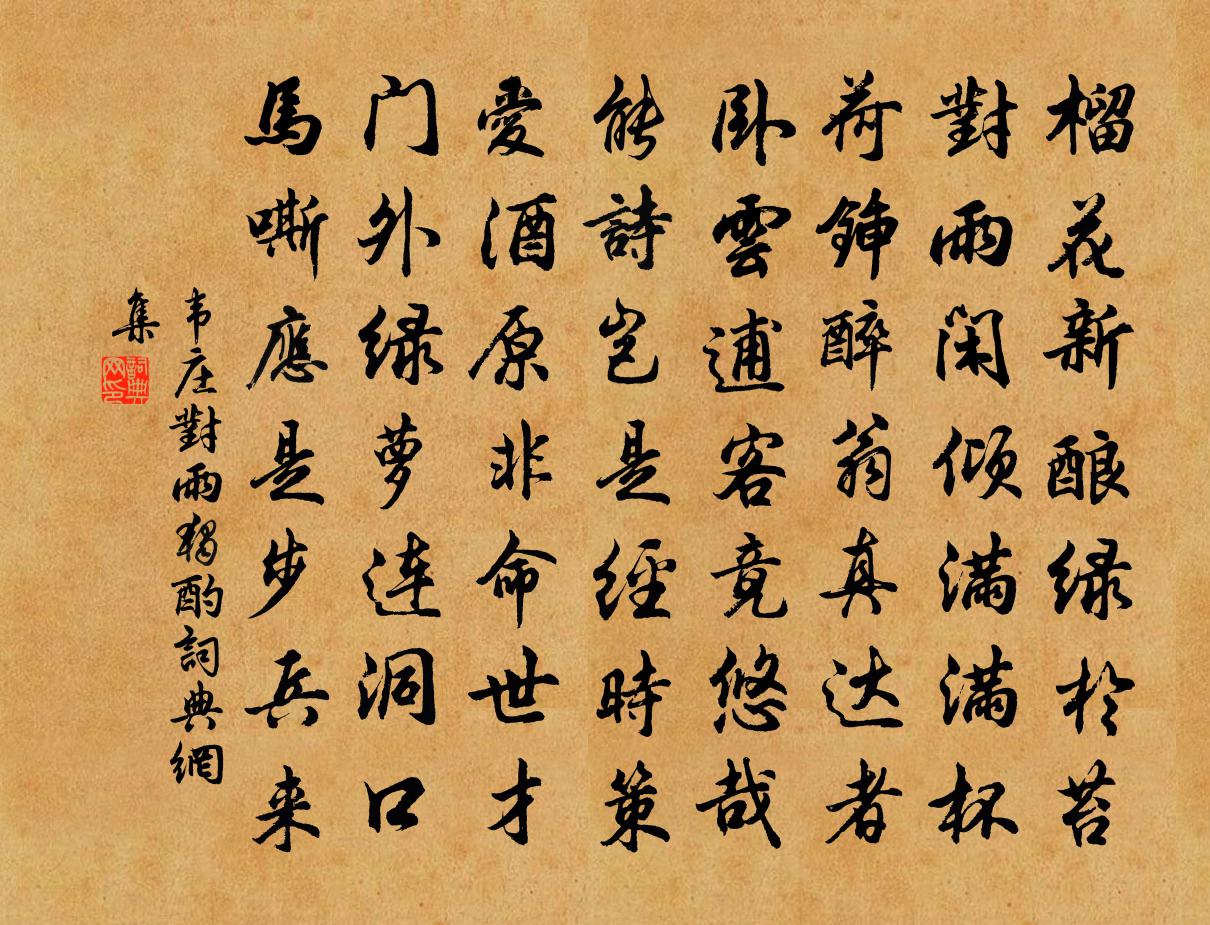 榴花新酿绿於苔
對雨闲倾满满杯
荷锸醉翁真达者
卧雲逋客竟悠哉
能詩岂是經時策
愛酒原非命世才
门外绿萝连洞口
馬嘶應是步兵来
韦庄對雨獨酌詞典網
集
詞典网印